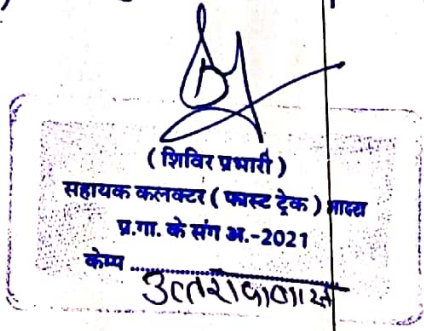 ( शिविर प्रभारी )
सहायक कलक्टर ( फास्ट ट्रेक )
प्र.गा. के संग अ.-2021
केम्प ....................